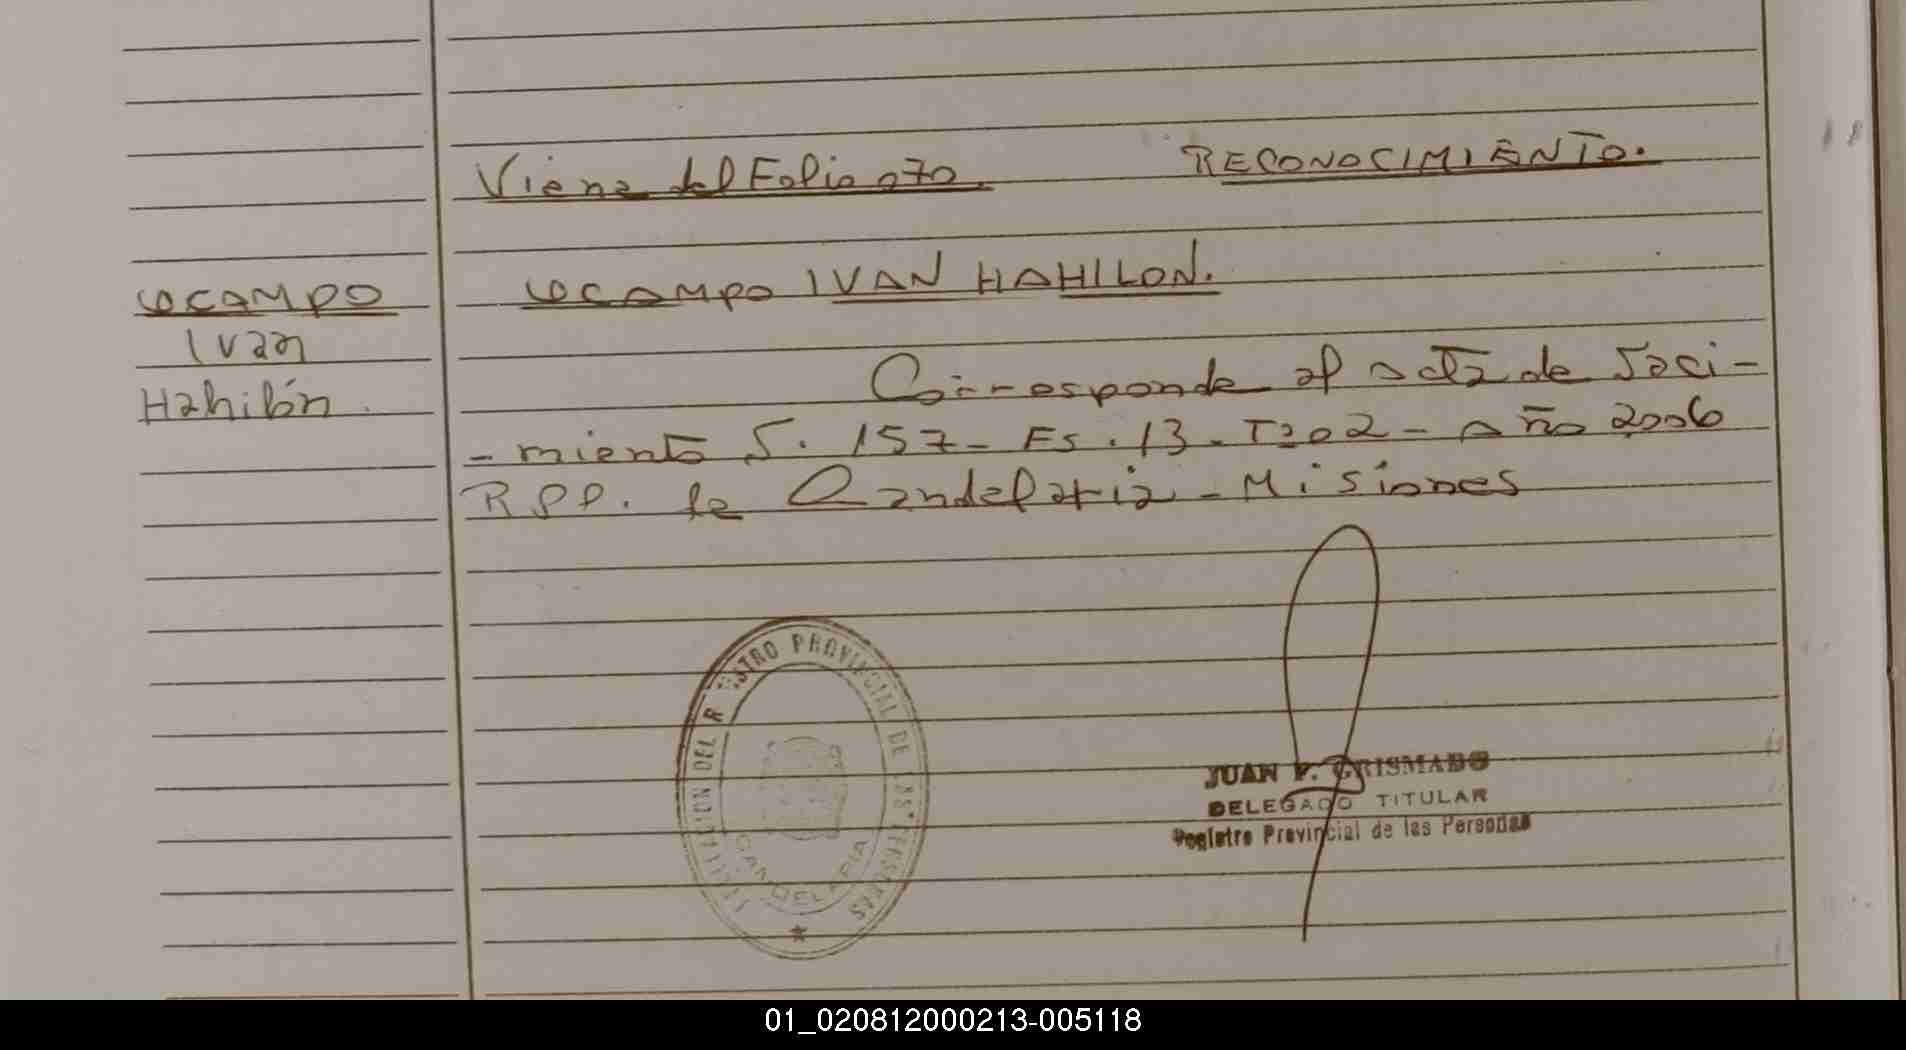 Viene del Folio 070. RECONOCIMIENTO.
OCAMPO
Ivan
Hahilón.
OCAMPO IVAN HAHILON.
Corresponde al acta de Naci-
-miento N. 157- Fs. 13- Tº 02- Año 2006
RPP. de Candelaria - Misiones
DELEGACION DEL REGISTRO PROVINCIAL DE LAS PERSONAS
CANDELARIA
JUAN F. CRISMADO
DELEGADO TITULAR
Registro Provincial de las Personas
01_020812000213-005118